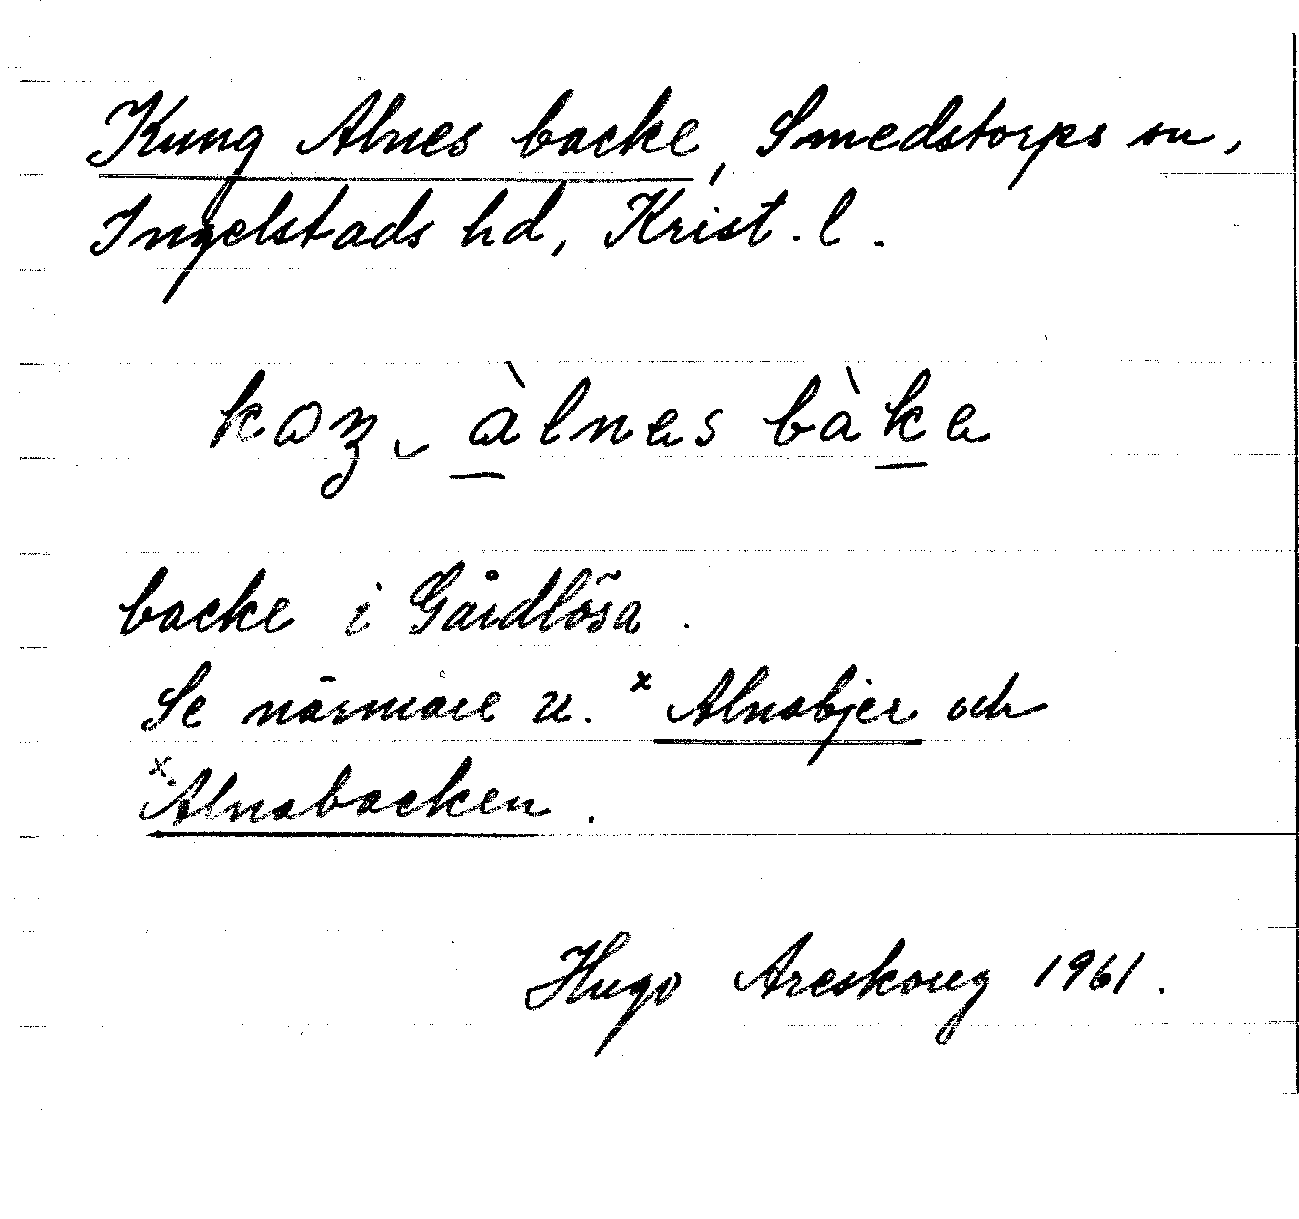 Kung Alnes backe, Smedstorps sn,
Ingelstads hd, Krist. l.
àlnes bàke
backe i Gårdlösa.
Se närmare u. x Alnabjer och
x Alnabacken.
Hugo Areskoug 1961.